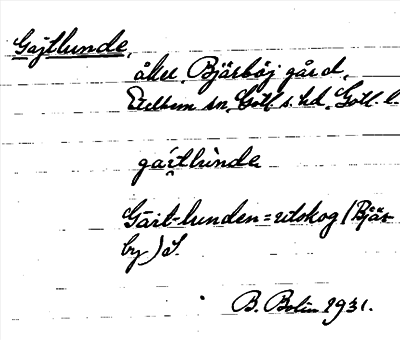 Gajtlunde,
åker, Bjärböj gård,
Etelhem sn, Gotl. s. hd, Gotl. l.
gai̯tlùnde
Gait-lunden = utskog (Bjär
by) S.
B. Bolin 1931.